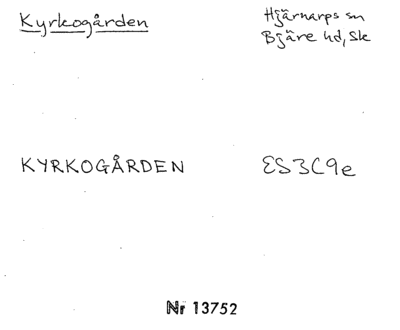 Kyrkogården
Hjärnarps sn
Bjäre hd, Sk
KYRKOGÅRDEN
ES3C9e
Nr 13752